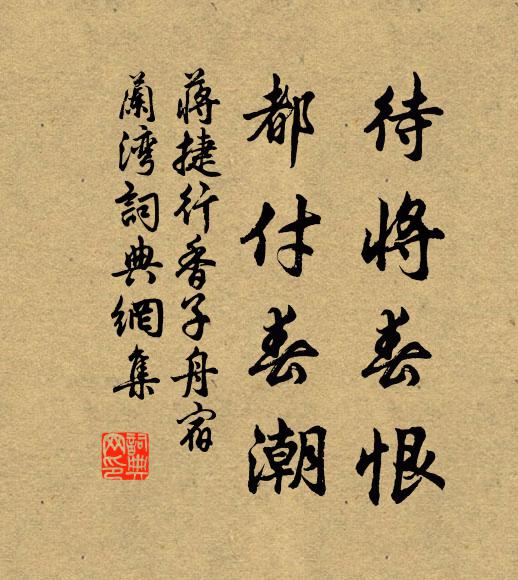 待將春恨
都付春潮
蔣捷行香子舟宿
蘭灣詞典網集
詞典
网印